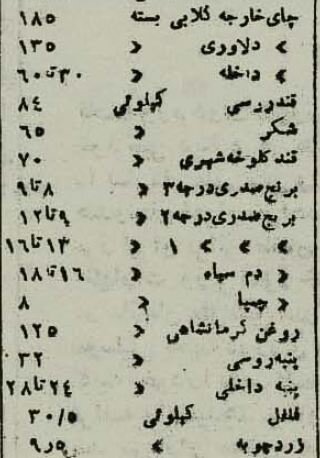 چای خارجه گلابی بسته ۱۸۵
« دلاوری « ۱۳۵
« داخله « ۳۰ تا ۶۰
قند روسی کیلوئی ۸۴
شکر « ۶۵
قند کلوخه شهری « ۷۰
برنج صدری درجه ۳ « ۸ تا ۹
برنج صدری درجه ۲ « ۹ تا ۱۲
« « « ۱ « ۱۳ تا ۱۶
« دم سیاه « ۱۶ تا ۱۸
« چمپا « ۸
روغن کرمانشاهی « ۱۲۵
پنبه روسی « ۳۲
پنبه داخلی « ۲۴ تا ۲۸
فلفل کیلوئی ۳۰/۵
زردچوبه « ۹٫۵